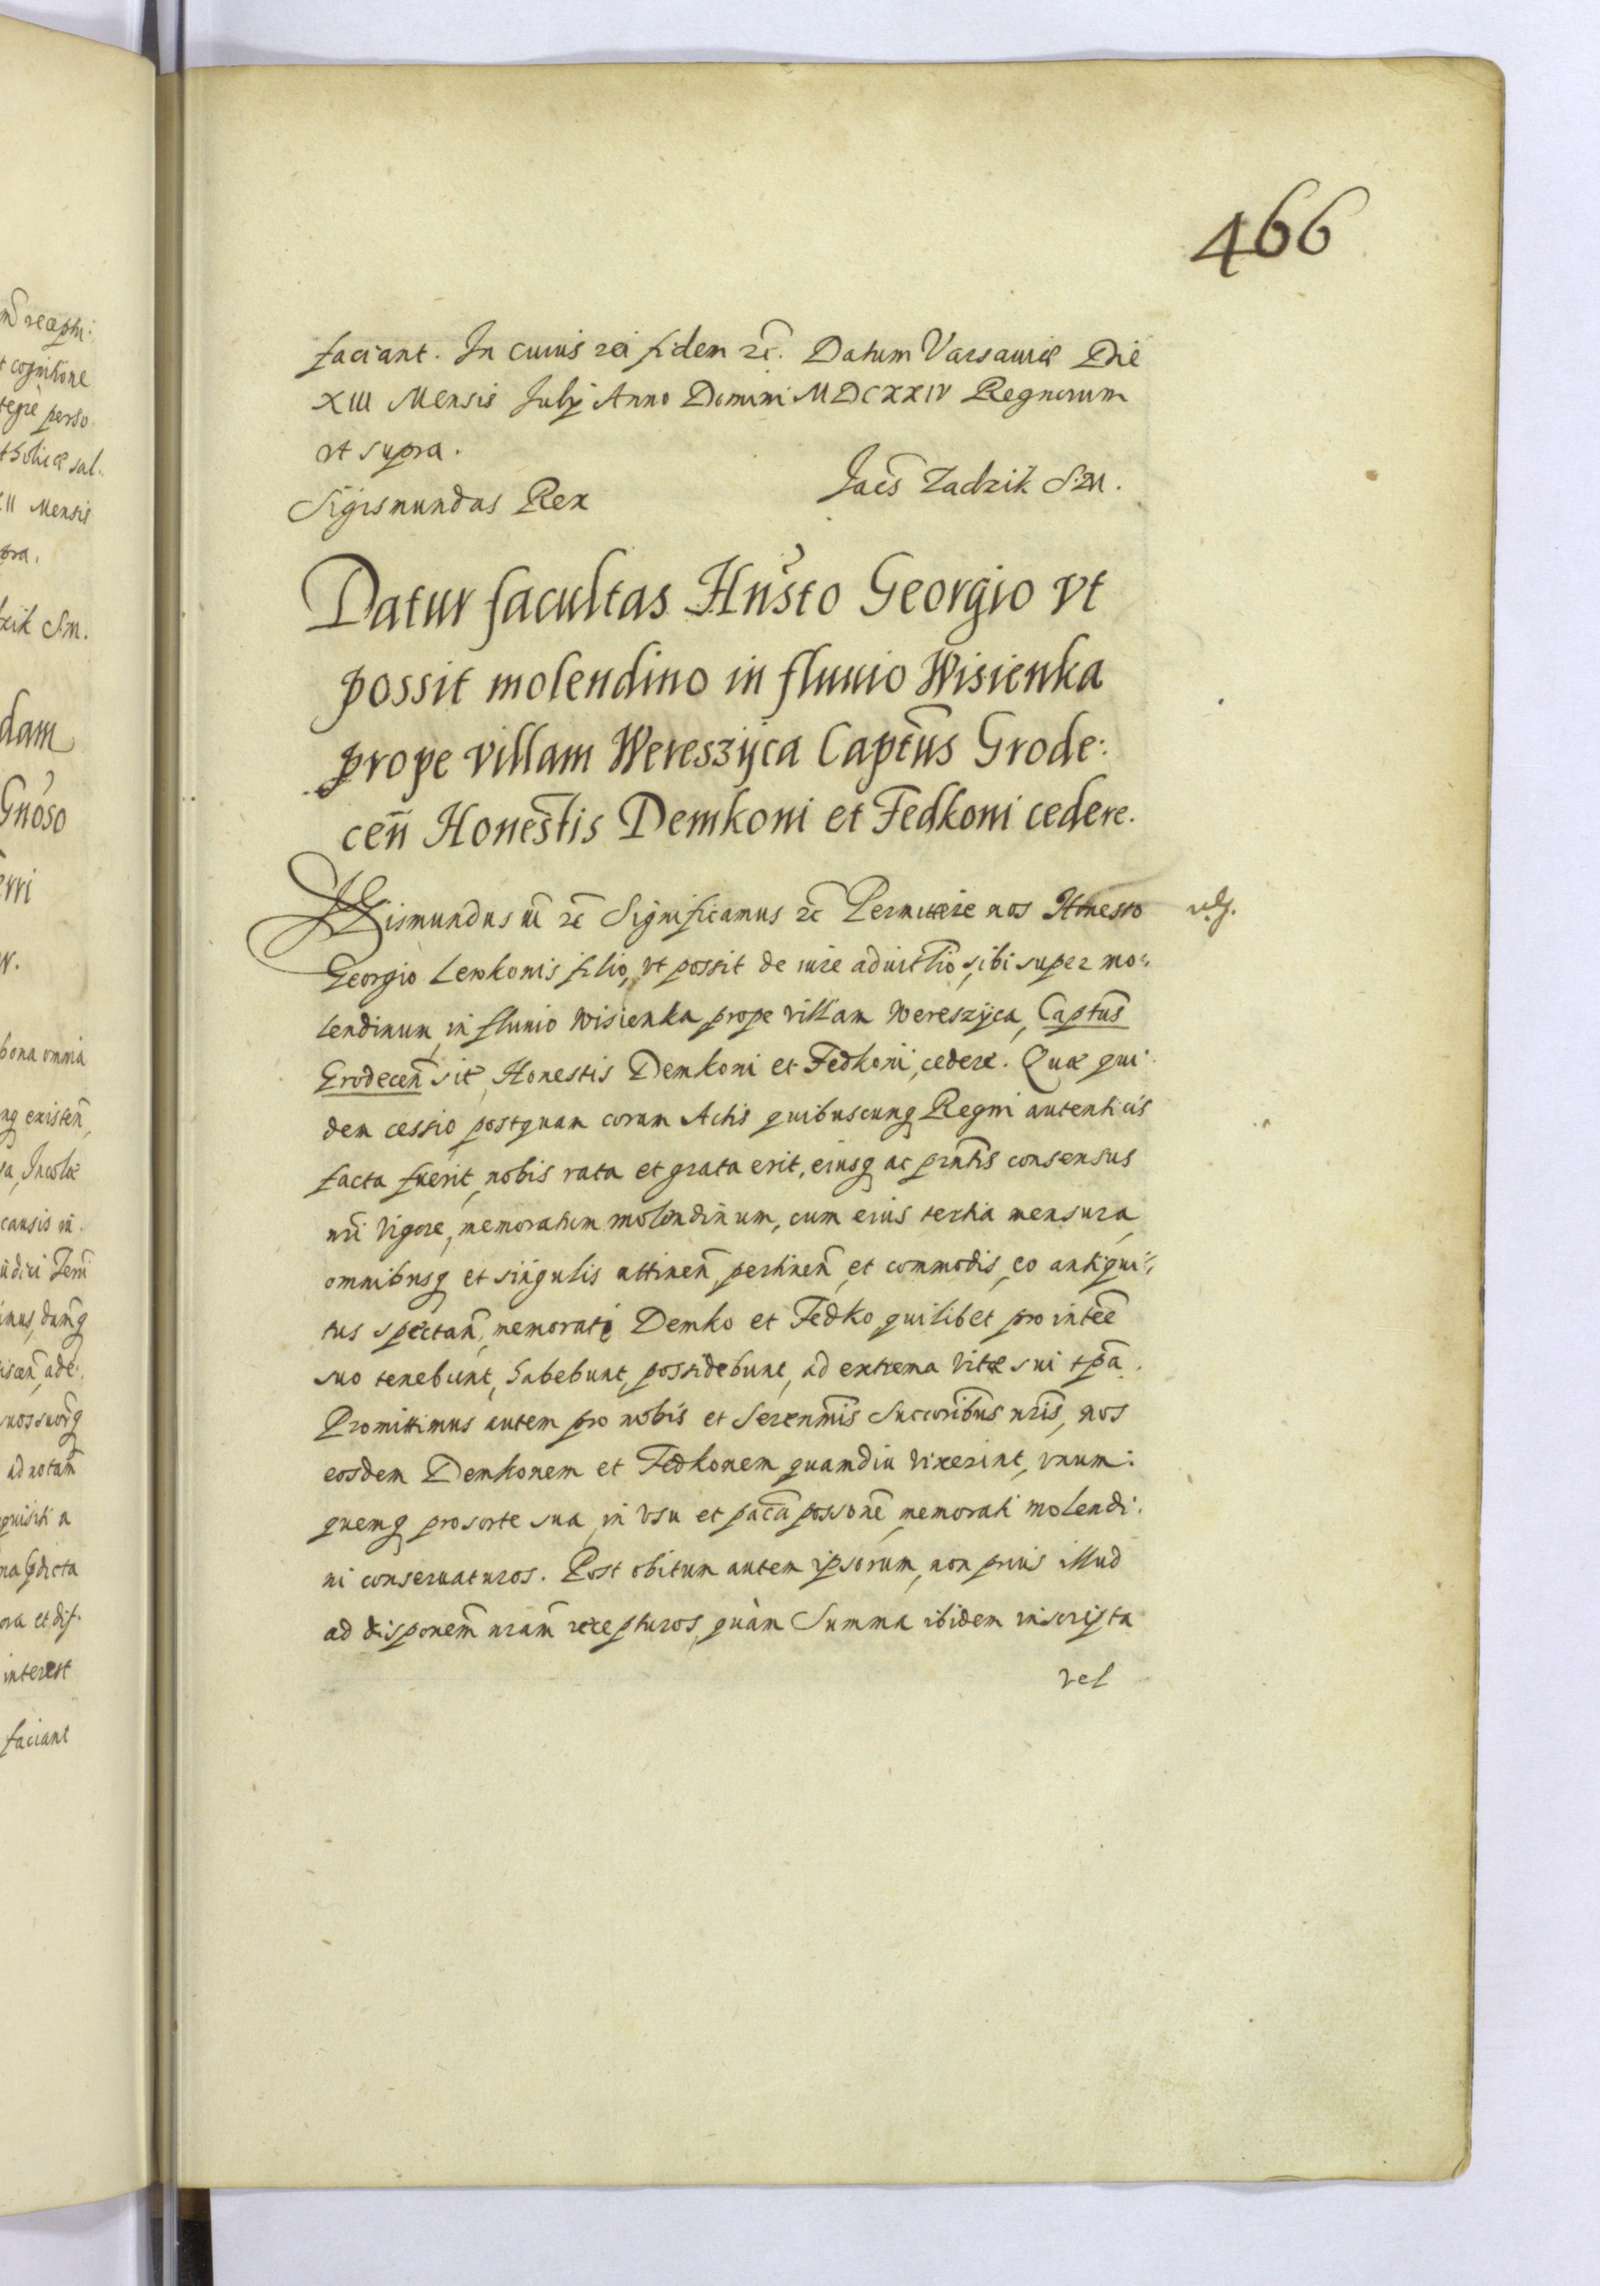 466
faciant. In cuius rei fidem ꝛc̃. Datum Varsauiæ Die
XIII Mensis Julÿ Anno Domini MDCXXIV Regnorum
vt supra.
Sigismundus Rex Jacs̃ Zadzik S.M.
Datur facultas Hns̃to Georgio vt
possit molendino in fluuio Wisienka
prope villam Wereszÿca Capt̃us Grode:
ceñ Honestis Demkoni et Fedkoni cedere.
Sigismundus III ꝛc̃ Significamus ꝛc̃ Permittere nos Honesto
Georgio Lewkonis filio, vt possit de iure aduitl̃io, sibi super mo:
lendinum, in fluuio Wisienka prope villam Wereszÿca, Capt̃us
Grodeceñ sit, Honestis Demkoni et Fedkoni, cedere. Quæ qui:
dem cessio postquam coram Actis quibuscunq Regni autenticis
facta fuerit, nobis rata et grata erit, eiusq ac prñtis consensus
nri Vigore, memoratum molendinum, cum eius tertia mensura,
omnibusq et singulis attineñ, pertineñ, et commodis, eo antiqui:
tus spectañ, memorati Demko et Fedko quilibet pro intẽe
suo tenebunt, habebunt, possidebunt, ad extrema Vitæ sui tp̃a.
Promittimus autem pro nobis et Serenm̃is Succoribus nris, nos
eosdem Demkonem et Fedkonem quamdiu Vixerint, vnum:
quemq pro sorte sua in Vsu et paca possone memorati molendi:
ni conseruaturos. Post obitum autem ipsorum, non prius illud
ad disponem nram recepturos, quàm Summa ibidem inscripta
vel